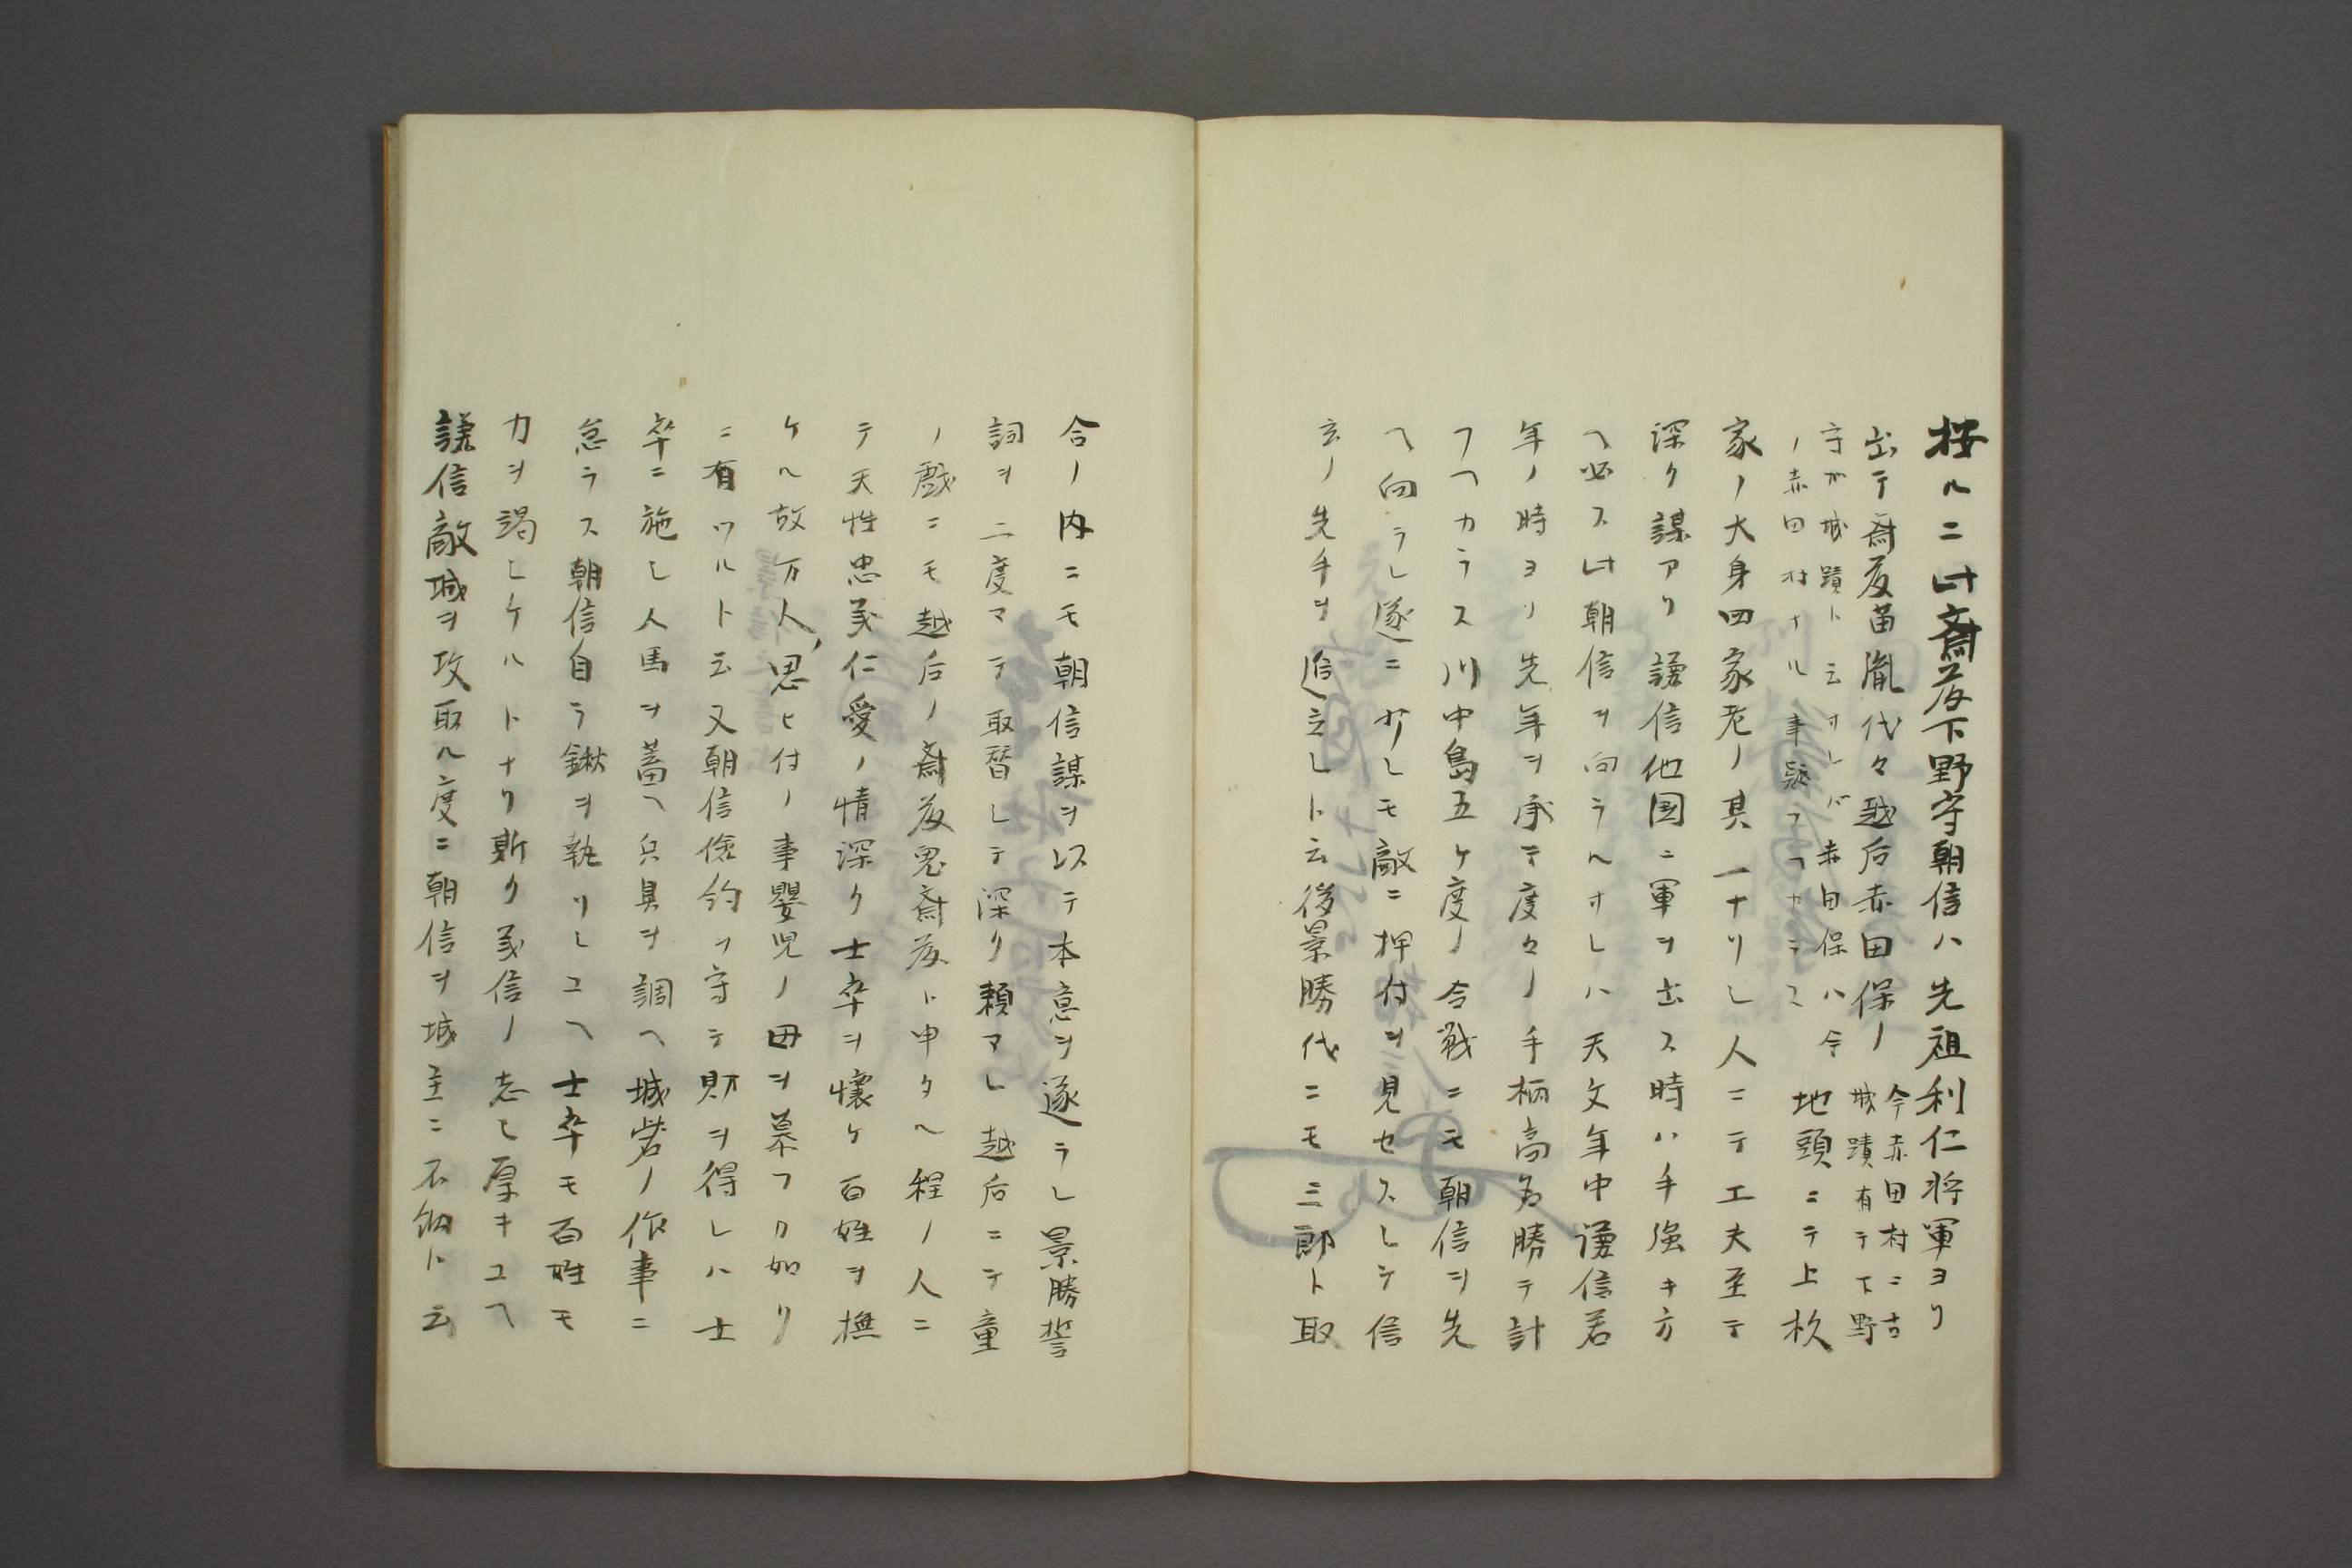 按ルニ此斎藤下野守朝信ハ先祖利仁将軍ヨリ
出テ斎藤苗胤代々越后赤田保ノ
今赤田村ニ古
城蹟有テ下野
守カ城蹟ト云ナレバ赤田保ハ今
ノ赤田村ナル事疑フヘカラス
地頭ニテ上杦
家ノ大身四家老ノ其一ナリし人ニテ工夫至テ
深ク謀アリ謙信他国ニ軍ヲ出ス時ハ手強キ方
ヘ必ス此朝信ヲ向ラヘナレハ天文年中謙信若
年ノ時ヨリ先年ヲ承テ度々ノ手柄高名勝テ計
フヘカラス川中島五ケ度ノ合戦ニモ朝信ヲ先
ヘ向ラレ遂ニ少しモ敵ニ押付ヲ見セスしテ信
玄ノ先手ヲ追立しト云後景勝代ニモ三郎ト取
合ノ内ニモ朝信謀ヲ以テ本意ヲ遂ラレ景勝誓
詞ヲ二度マテ取替しテ深ク頼マレ越后ニテ童
ノ戯ニモ越后ノ斎藤鬼斎藤ト申タヘ程ノ人ニ
テ天性忠義仁愛ノ情深ク士卒ヲ懐ケ百姓ヲ撫
ケル故万人思ヒ付ノ事嬰児ノ母ヲ慕フカ如ク
ニ有ツルト云又朝信倹約ヲ守テ財ヲ得レハ士
卒ニ施し人馬ヲ蓄ヘ兵具ヲ調ヘ城営ノ作事ニ
怠ラス朝信自ラ鍬ヲ執リしユヘ士卒モ百姓モ
力ヲ竭しケルトナリ斯ク義信ノ志し厚キユヘ
謙信敵城ヲ攻取ル度ニ朝信ヲ城主ニ不銘ト云